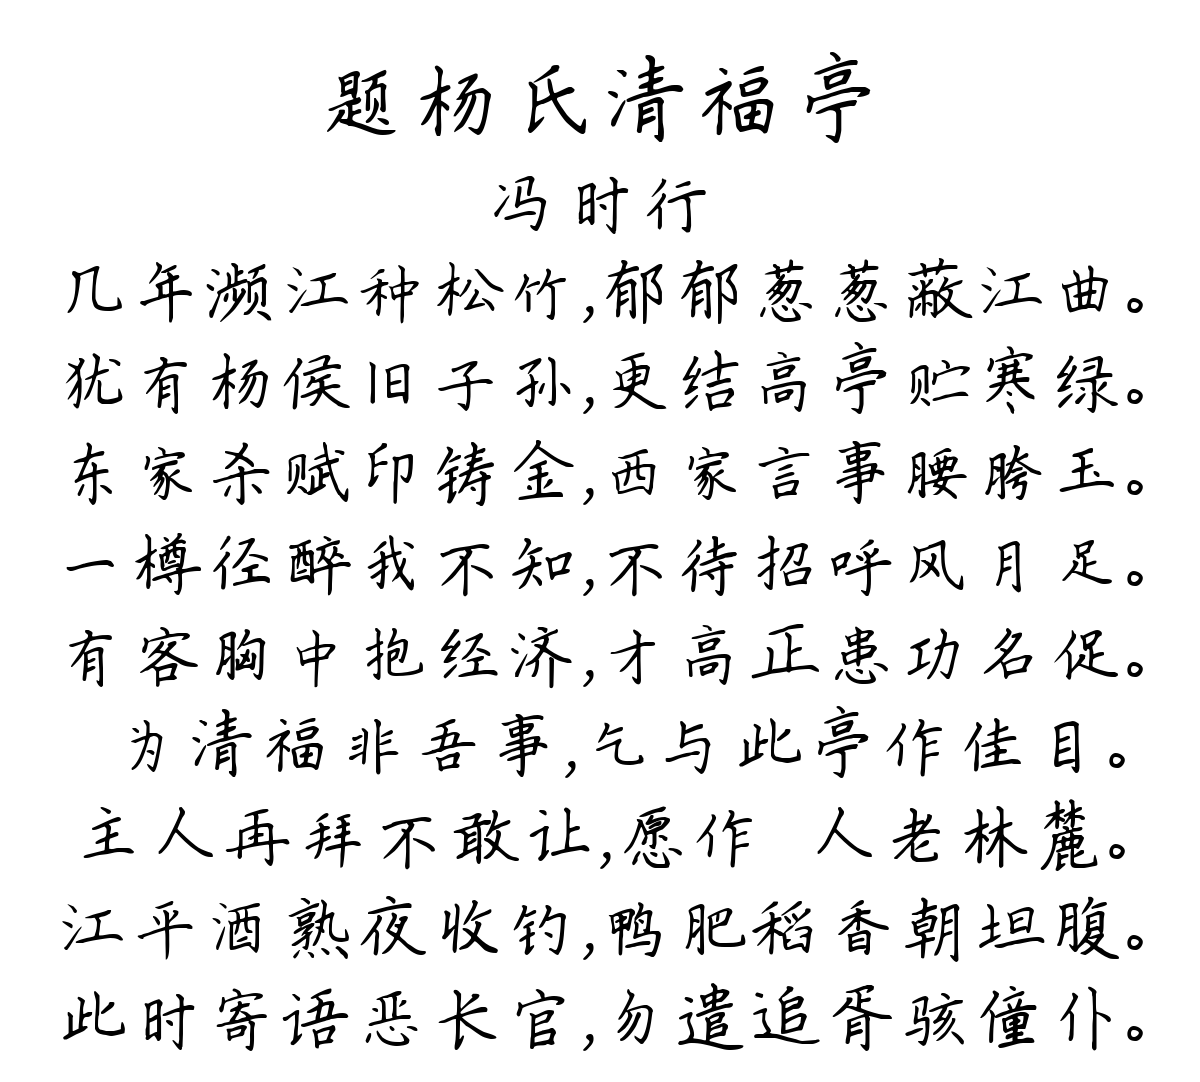 题杨氏清福亭
冯时行
几年濒江种松竹,郁郁葱葱蔽江曲。
犹有杨侯旧子孙,更结高亭贮寒绿。
东家杀赋印铸金,西家言事腰胯玉。
一樽径醉我不知,不待招呼风月足。
有客胸中抱经济,才高正患功名促。
为清福非吾事,乞与此亭作佳目。
主人再拜不敢让,愿作 人老林麓。
江平酒熟夜收钓,鸭肥稻香朝坦腹。
此时寄语恶长官,勿遣追胥骇僮仆。